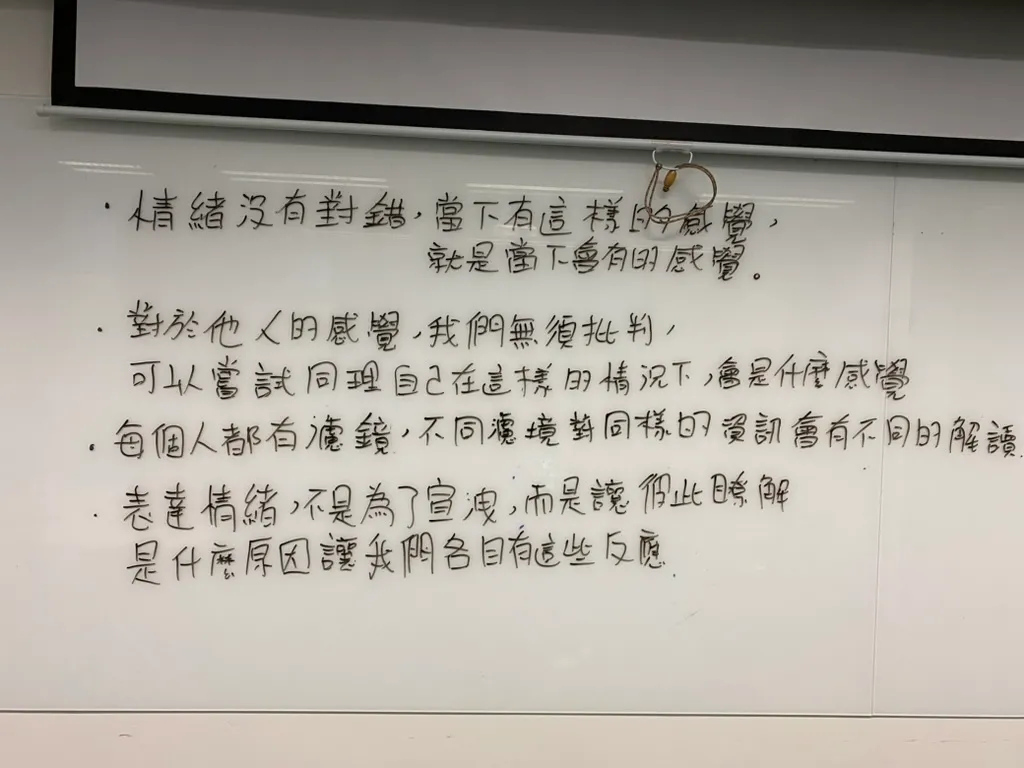 ・情緒沒有對錯，當下有這樣的感覺，
就是當下會有的感覺。
・對於他人的感覺，我們無須批判，
可以嘗試同理自己在這樣的情況下，會是什麼感覺
・每個人都有濾鏡，不同濾境對同樣的資訊會有不同的解讀.
・表達情緒，不是為了宣洩，而是讓彼此瞭解
是什麼原因讓我們各自有這些反應.